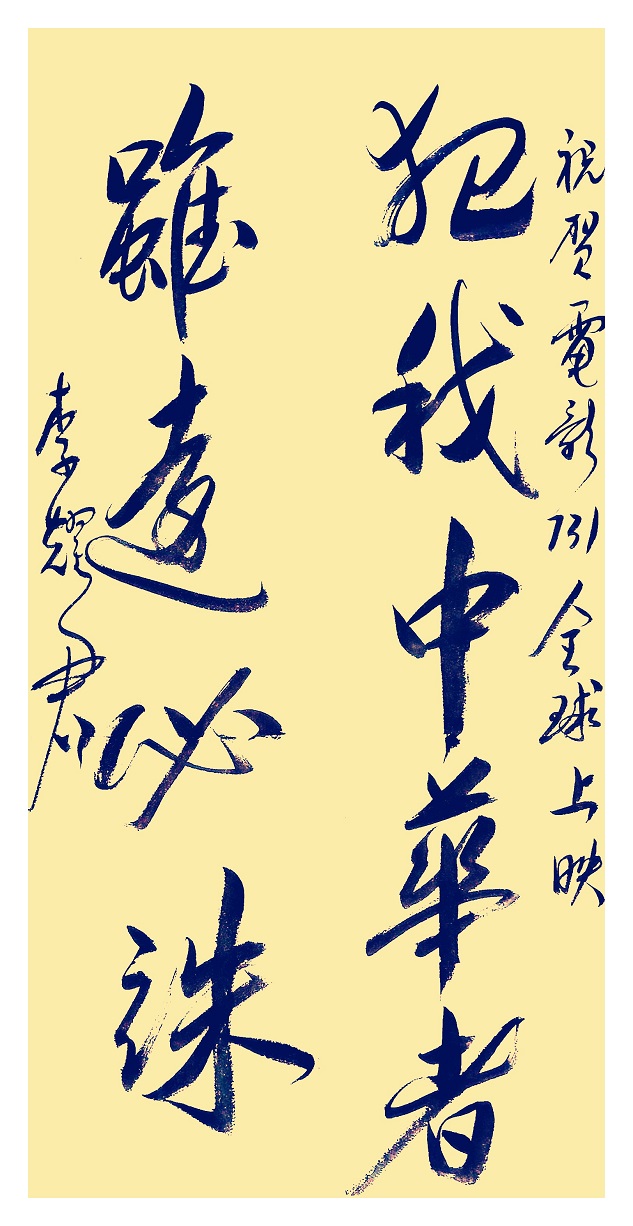 祝贺電影731全球上映
犯我中華者
雖遠必誅
李耀君